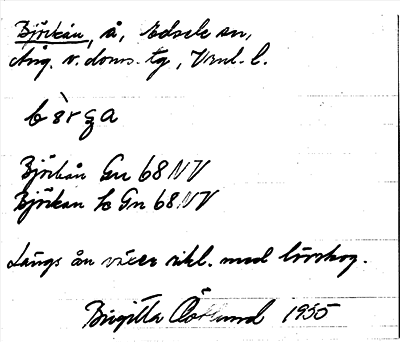 Björkån, å, Edsele sn,
Ång. v. doms. tg, Vrnl. l.
bèrga
Björkån Gn 68 NV
Björkån Hc Gn 68 NV
Längs ån växer rikl. med lövskog.
Birgitta Östlund 1955